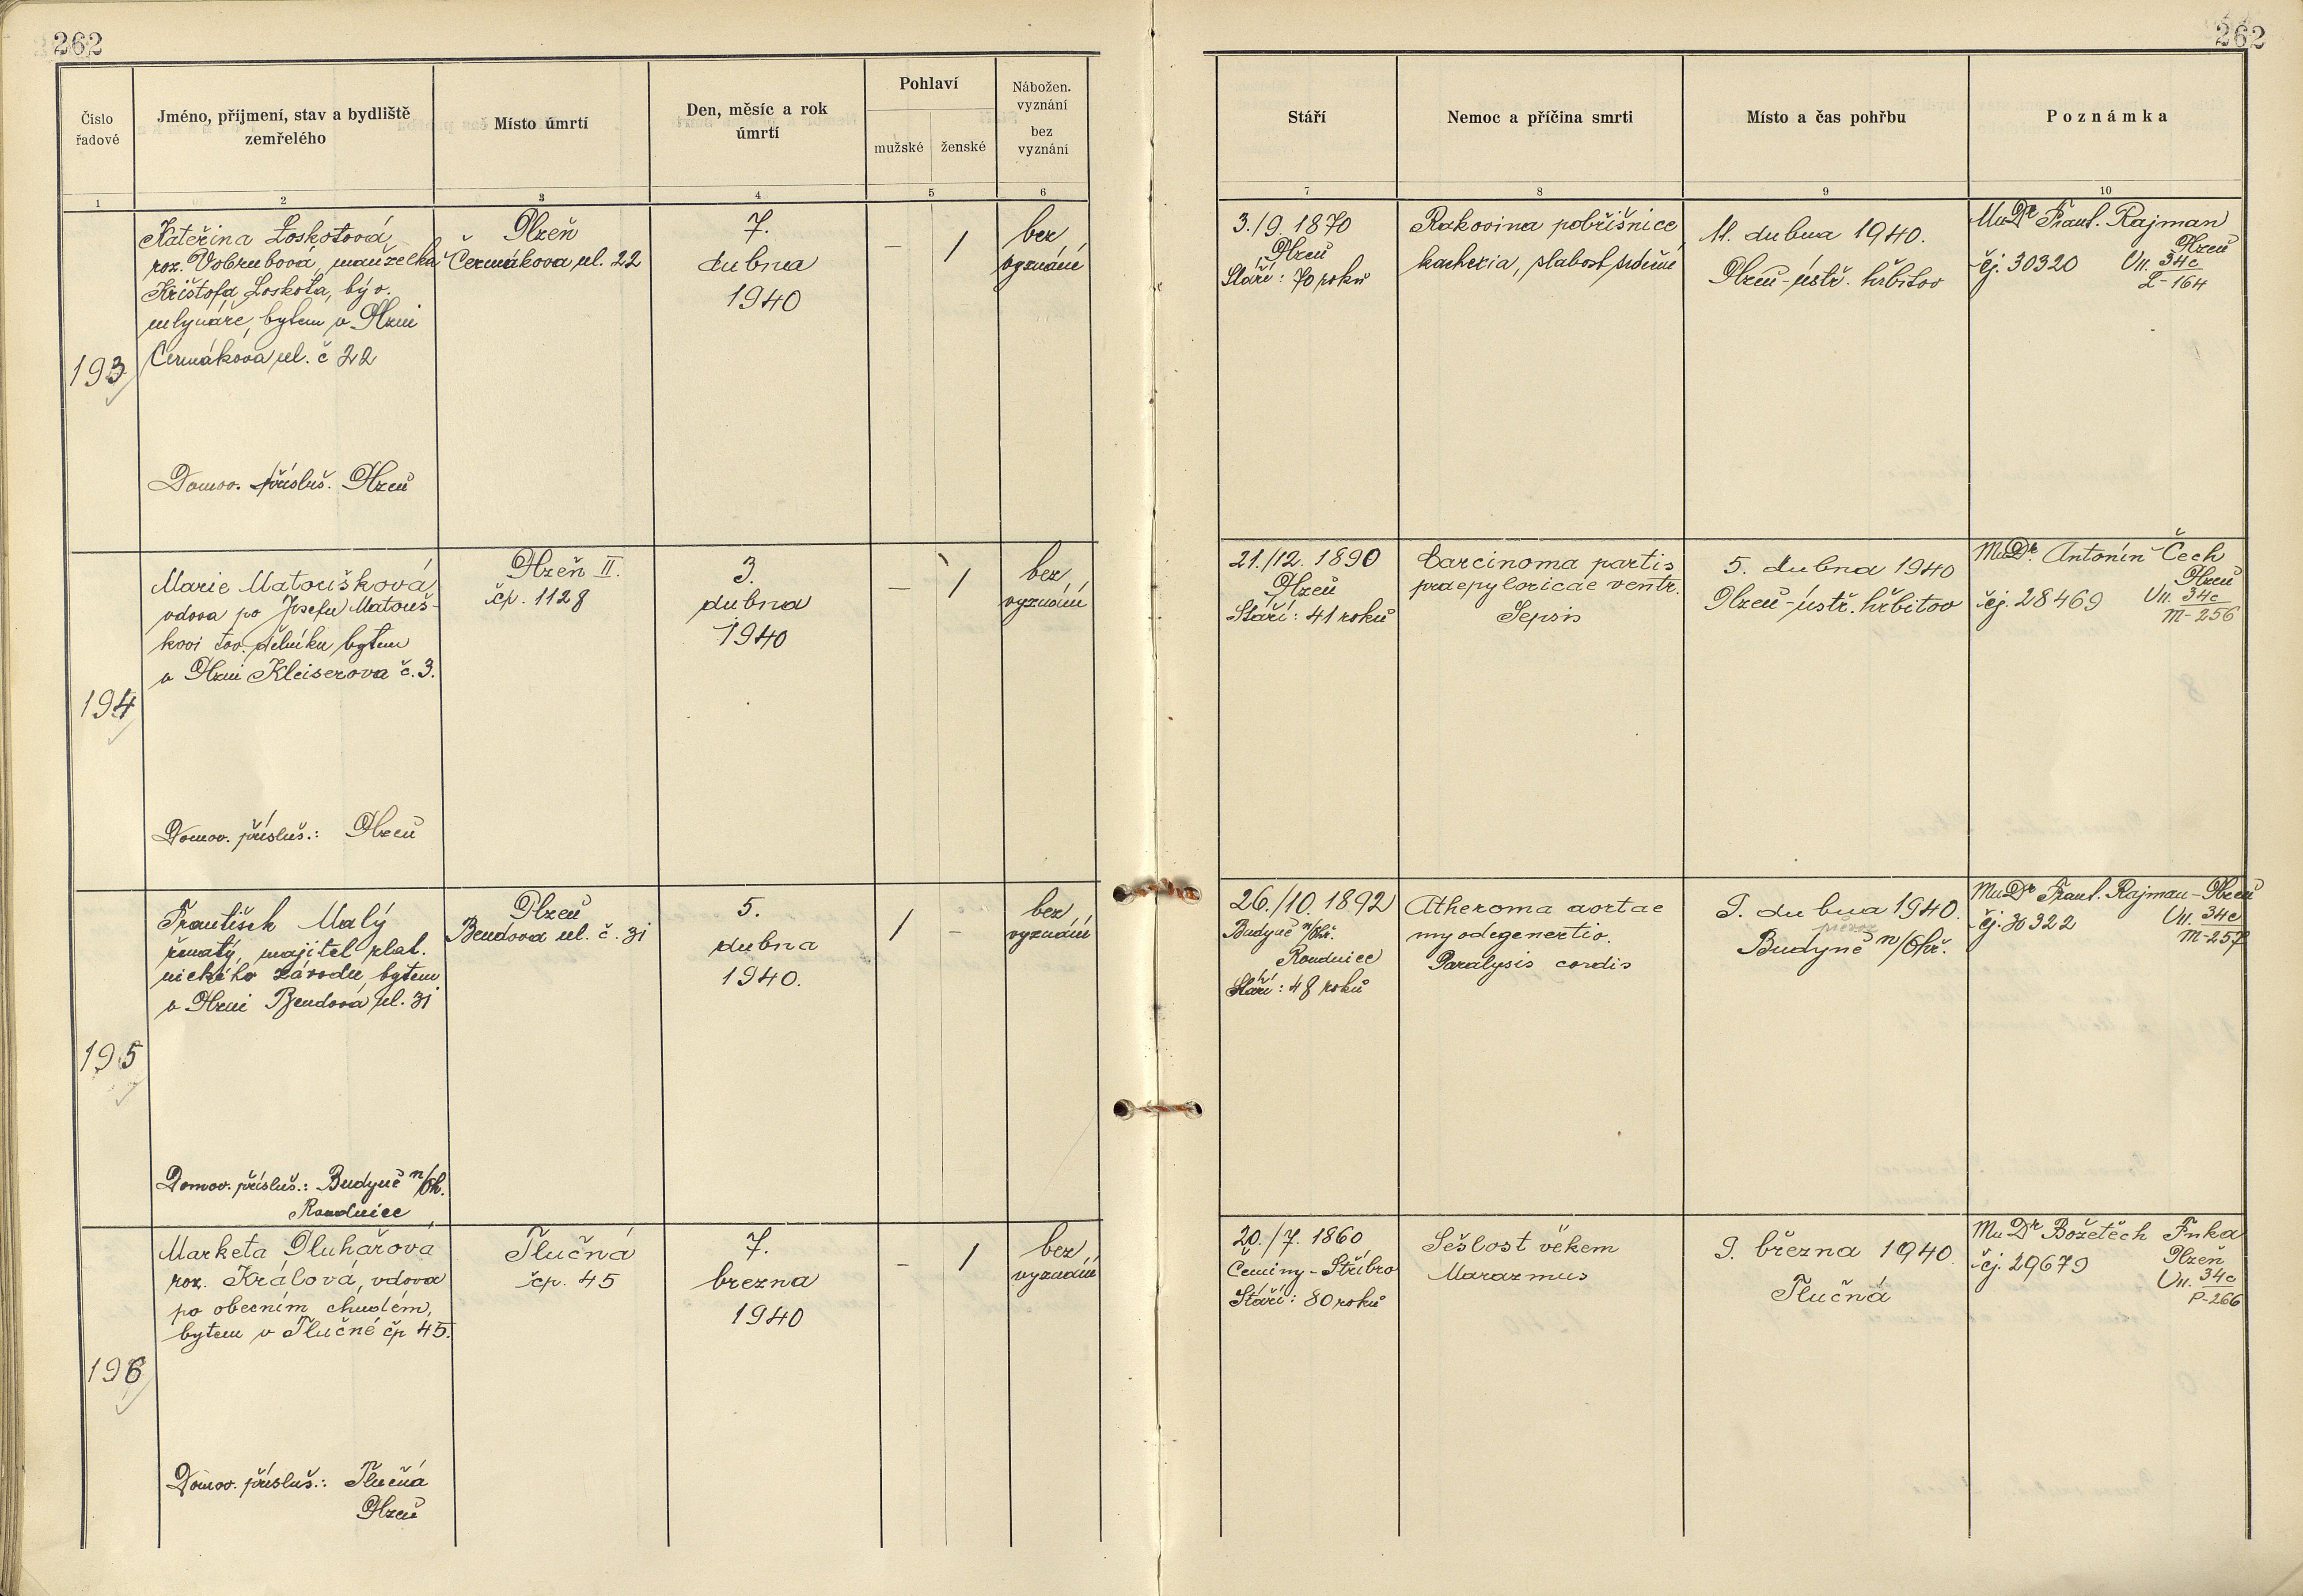 262
262
Číslo
řadové
Jméno, příjmení, stav a bydliště
zemřelého
Místo úmrtí
Den, měsíc a rok
úmrtí
Pohlaví
mužské
ženské
Nábožen.
vyznání
bez
vyznání
Stáří
Nemoc a příčina smrti
Místo a čas pohřbu
Poznámka
1
2
3
4
5
6
7
8
9
10
193
Kateřina Loskotová
roz. Vobrubová, manželka
Krištofa Loskota, býv.
mlynáře, bytem v Plzni
Čermákova ul. č 22
Domov. přísluš. Plzeň
Plzeň
Čermákova ul. 22
7.
dubna
1940
–
1
bez
vyznání
3./9. 1870
Plzeň
Stáří: 70 roků
Rakovina pobřišnice
kachexia, slabost srdeční
11. dubna 1940.
Plzeň-ústř. hřbitov
MuDr Frant. Rajman
Plzeň
čj. 30320
VII. 34c
L-164
194
Marie Matoušková
vdova po Josefu Matouš-
kovi tov. dělníku, bytem
v Plzni Kleiserova č. 3.
Domov. přísluš.: Plzeň
Plzeň II.
čp. 1128
3.
dubna
1940
–
1
bez
vyznání
21./12. 1890
Plzeň
Stáří: 41 roků
Carcinoma partis
praepyloricae ventr.
Sepsis
5. dubna 1940
Plzeň-ústř. hřbitov
MuDr. Antonín Čech
Plzeň
čj. 28469
VII. 34c
M-256
195
František Malý
ženatý, majitel plat.
nického závodu, bytem
v Plzni Bendova ul. 31
Domov. přísluš.: Budyně n/Oh.
Roudnice
Plzeň
Bendova ul. č. 31
5.
dubna
1940.
1
–
bez
vyznání
26./10. 1892
Budyně n/Ohř.
Roudnice
Stáří: 48 roků
Atheroma aortae
myodegenertio.
Paralysis cordis
9. dubna 1940.
Budyně n/Ohř.
MuDr Frant. Rajman-Plzeň
čj. 30322
VII. 34c
M-257
196
Marketa Pluhařová
roz. Králová, vdova
po obecním chudém,
bytem v Tlučné čp 45.
Domov. přísluš.: Tlučná
Plzeň
Tlučná
čp. 45
7.
brezna
1940
–
1
bez
vyznání
20./7. 1860
Čeminy-Stříbro
Stáří: 80 roků
Sešlost věkem
Marazmus
9. března 1940.
Tlučná
MuDr Božetěch Fnka
Plzeň
čj. 29679
VII. 34c
P-266